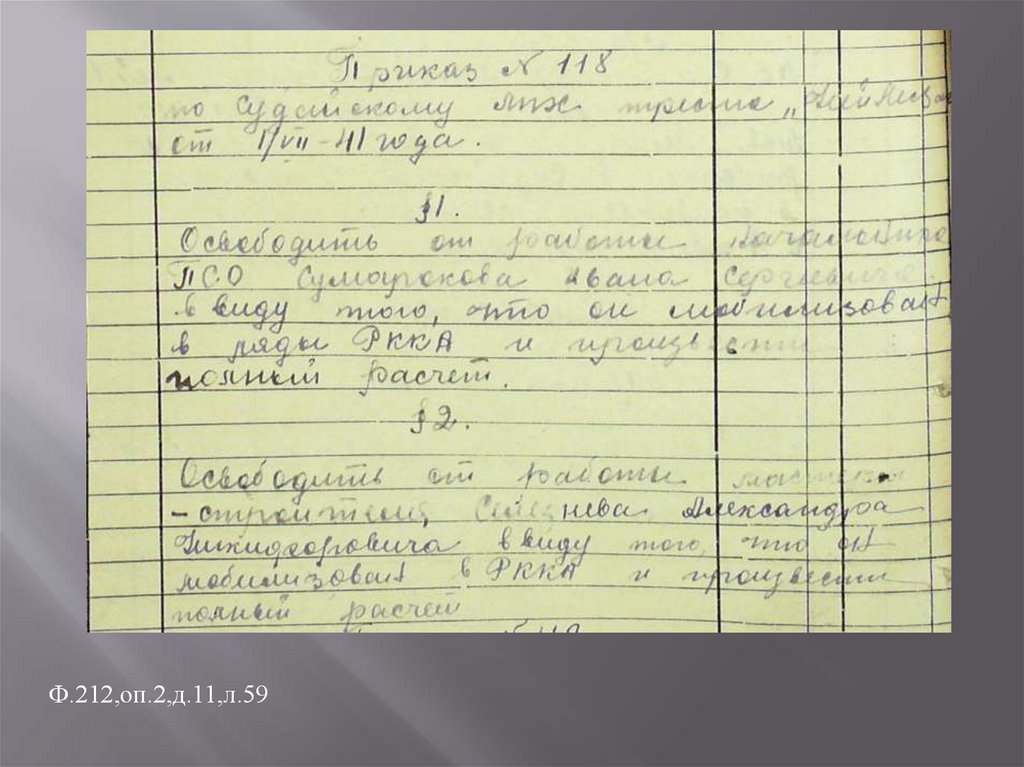 Приказ № 118
по Судайскому лпх треста „
от 1/VII-41 года.
§1.
Освободить от работы начальника
ПСО Сумарокова Ивана Сергеевича
ввиду того, что он мобилизован
в ряды РККА и произвести
полный расчет.
§2.
Освободить от работы мастера
-строителя, Александра
Никифоровича ввиду того, что он
мобилизован в РККА и произвести
полный расчет
Ф.212,оп.2,д.11,л.59